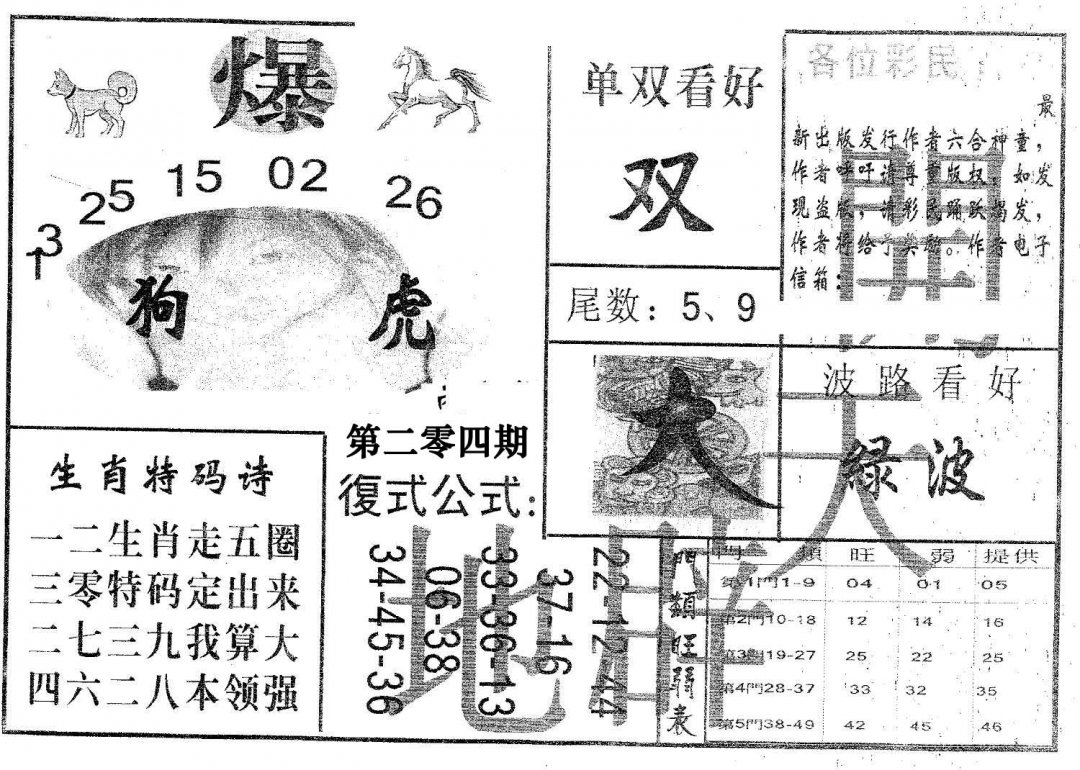 爆
25 15 02 26
13
狗 虎
单双看好
双
尾数：5、9
各位彩民：
最
新出版发行作者六合神童，
作者呼吁请尊重版权，如发
现盗版，请彩民踊跃揭发，
作者将给予奖励。作者电子
信箱：
大
波路看好
綠波
開天地旺
生肖特码诗
一二生肖走五圈
三零特码定出来
二七三九我算大
四六二八本领强
第二零四期
復式公式：
34-45-36
06-38
33-36-13
37-16
22-12-44
門類旺弱表
門 類 旺 弱 提供
第1門1-9 04 01 05
第2門10-18 12 14 16
第3門19-27 25 22 25
第4門28-37 33 32 35
第5門38-49 42 45 46